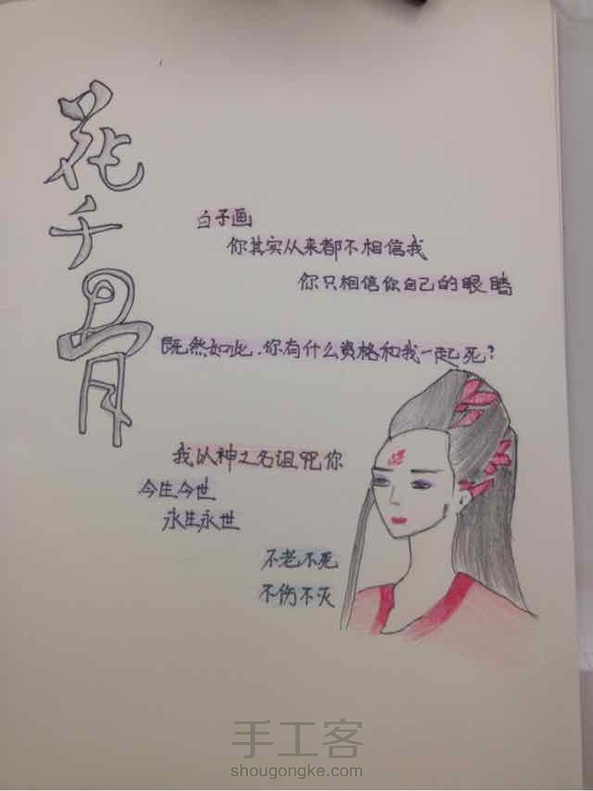 花千骨
白子画
你其实从来都不相信我
你只相信你自己的眼睛
既然如此.你有什么资格和我一起死?
我以神之名诅咒你
今生今世
永生永世
不老不死
不伤不灭
手工客
shougongke.com